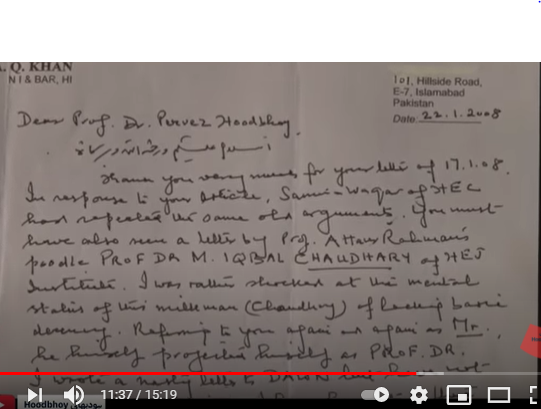 . Q. KHAN
N I & BAR, HI
101, Hillside Road,
E-7, Islamabad
Pakistan
Date: 22.1.2008
Dear Prof. Dr. Pervez Hoodbhoy,
Thank you very much for your letter of 17.1.08.
In response to your Article, Sami-Waqar of HEC
had repeated the same old arguments. You must
have also seen a letter by Prof. Atta ur Rahman's
poodle PROF DR M. IQBAL CHAUDHARY of HEJ
Institute. I was rather shocked at the mental
status of this milkman (Chaudhry) of lacking basic
decency. Referring to you again and again as Mr.
he himself projected himself as PROF. DR.
I wrote a nasty letter to DAWN but
Hoodbhoy
11:37 / 15:19